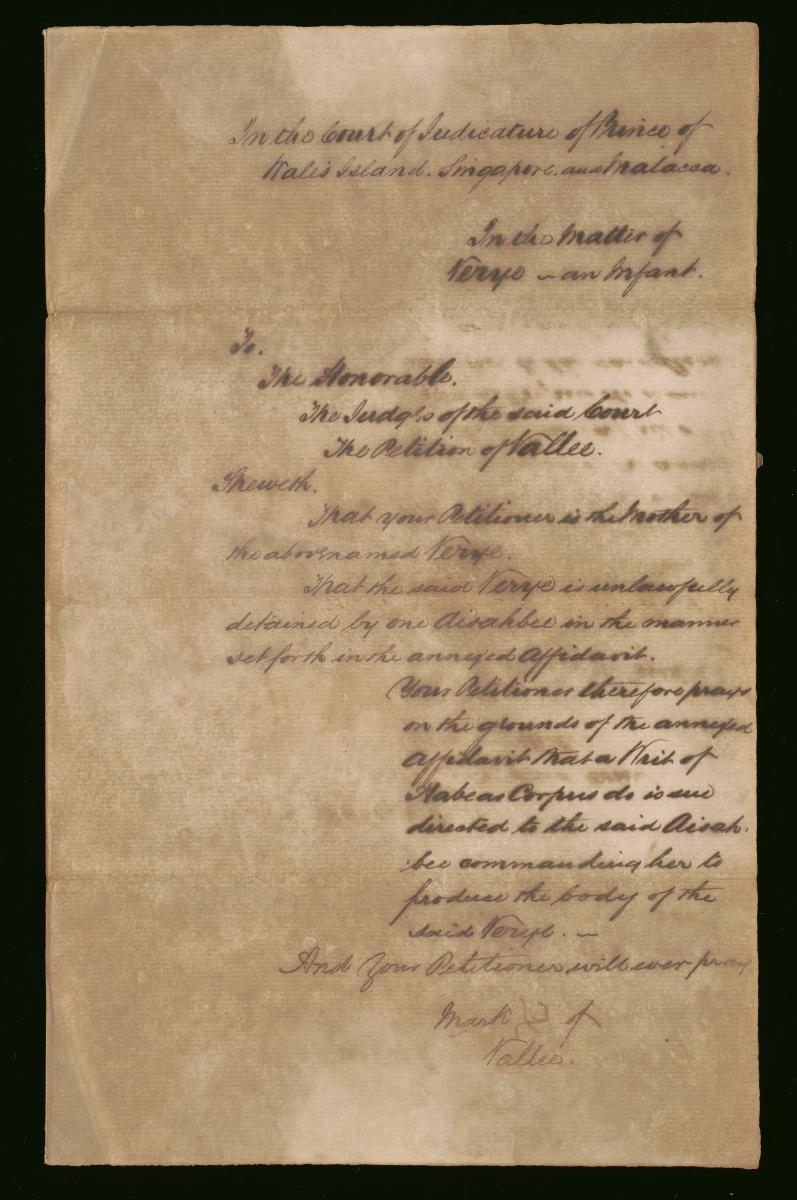 In the Court of Judicature of Prince of
Wales Island. Singapore. and Malacca.
In the Matter of
Verye - an Infant.
To.
The Honorable.
The Judges of the said Court
The Petition of Vallee.
Sheweth.
That your Petitioner is the Mother of
the abovenamed Verye.
That the said Verye is unlawfully
detained by one Aisahbee in the manner
set forth in the annexed Affidavit.
Your Petitioner therefore prays
on the grounds of the annexed
Affidavit that a Writ of
Habeas Corpus do issue
directed to the said Aisah.
bee commanding her to
produce the body of the
said Verye. -
And Your Petitioner will ever pray
Mark of
Vallee.